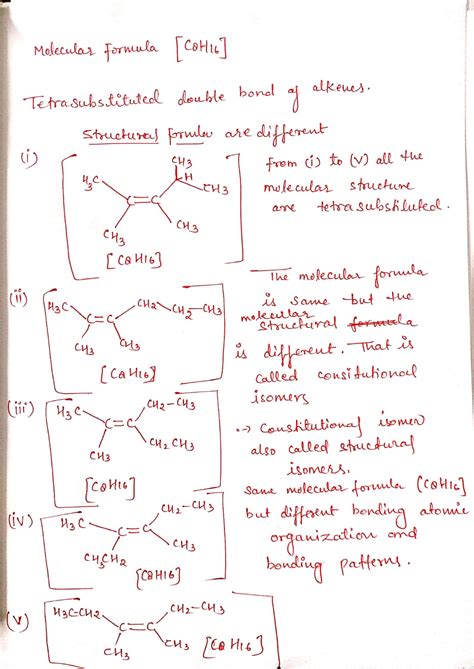 Molecular formula [C8H16]
Tetrasubstituted double bond of alkenes.
Structural formula are different
(i)
CH3
H3C
H
CH3
C=C
CH3
CH3
[C8H16]
from (i) to (v) all the
molecular structure
are tetrasubstituted.
(ii)
H3C
CH2-CH2-CH3
C=C
CH3
CH3
[C8H16]
The molecular formula
is same but the
molecular
structural formula
is different. That is
called consitutional
isomers
(iii)
H3C
CH2-CH3
C=C
CH3
CH2CH3
[C8H16]
-> Constitutional isomer
also called structural
isomers.
same molecular formula (C8H16]
but different bonding atomic
organization and
bonding patterns.
(iv)
H3C
CH2-CH3
C=C
CH2CH3
CH3
[C8H16]
(v)
H3C-CH2
CH2-CH3
C=C
CH3
CH3
[C8H16]